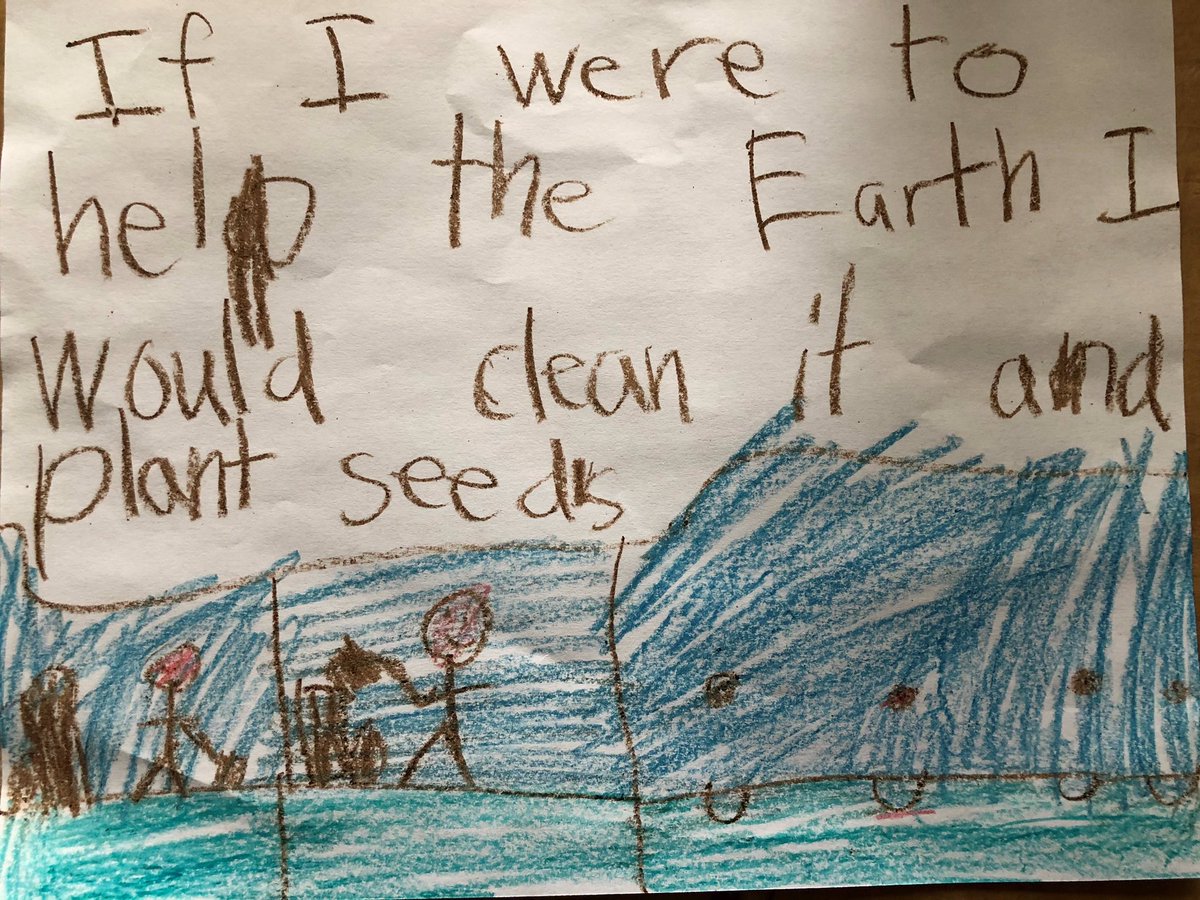 If I were to
help the Earth I
would clean it and
plant seeds